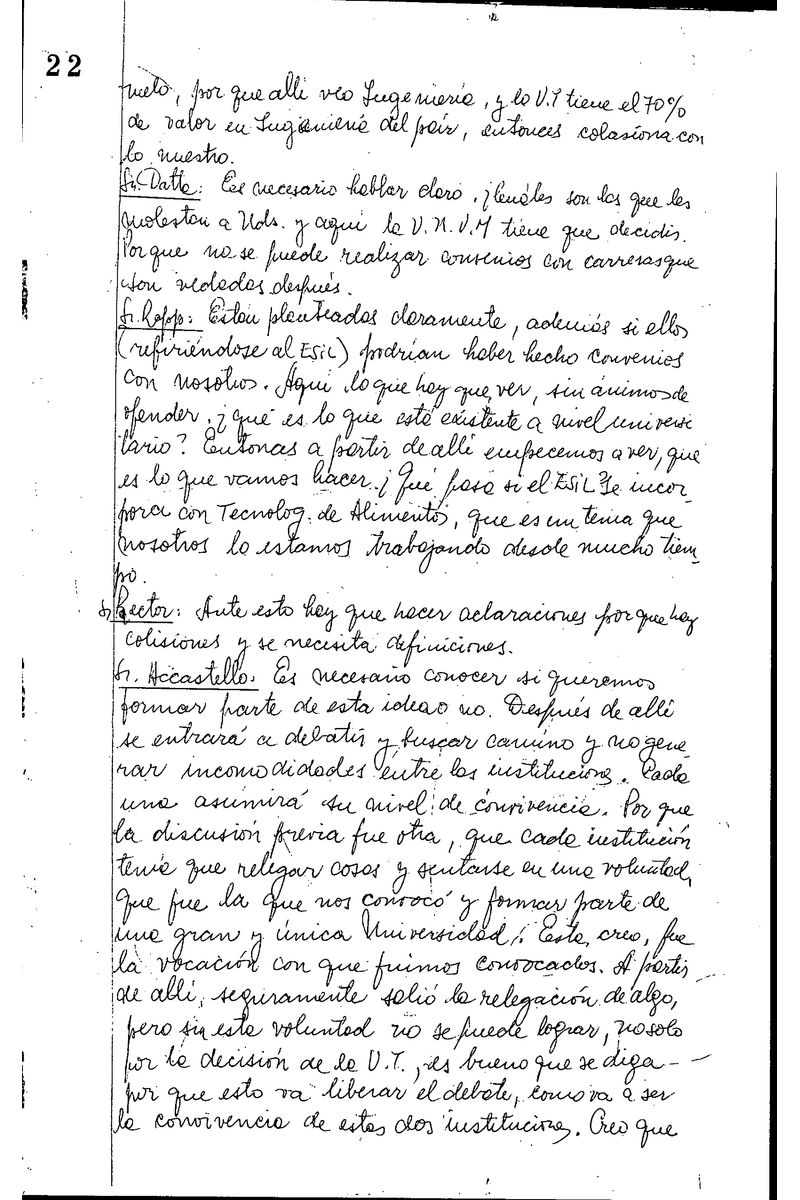 22
por que alli veo Ingenieria, y la U.T tiene el 70%
de valor en Ingenieria del país, entonces colasiona con
lo nuestro.
Sr. Datta: Es necesario hablar claro. ¿Cuáles son las que les
molestan a Uds. y aqui la U.N.V.M tiene que decidir.
Por que no se puede realizar convenios con carreras que
son vedadas después.
Sr. Rapp: Estan planteadas claramente, además si ellos
(refiriéndose al ESIL) podrían haber hecho convenios
con nosotros. Aqui lo que hay que ver, sin ánimos de
ofender, ¿qué es lo que está existente a nivel universi
tario? Entonces a partir de alli empecemos a ver, que
es lo que vamos hacer. ¿Qué pasa si el ESIL se incor_
pora con Tecnolog. de Alimentos, que es un tema que
nosotros lo estamos trabajando desde mucho tiem_
po.
Sr Rector: Ante esto hay que hacer aclaraciones por que hay
colisiones y se necesita definiciones.
Sr. Accastello: Es necesario conocer si queremos
formar parte de esta idea o no. Después de alli
se entrará a debatir y buscar camino y no gene_
rar incomodidades entre las instituciones. Cada
una asumirá su nivel de convivencia. Por que
la discusión previa fue otra, que cada institución
tenía que relegar cosas y sentarse en una voluntad,
que fue la que nos convocó y formar parte de
una gran y única Universidad. Esta, creo, fue
la vocación con que fuimos convocados. A partir
de alli, seguramente salió la relegación de algo,
pero sin esta voluntad no se puede lograr, no solo
por la decisión de la U.T., es bueno que se diga -
por que esto va liberar el debate, como va a ser
la convivencia de estas dos instituciones. Creo que